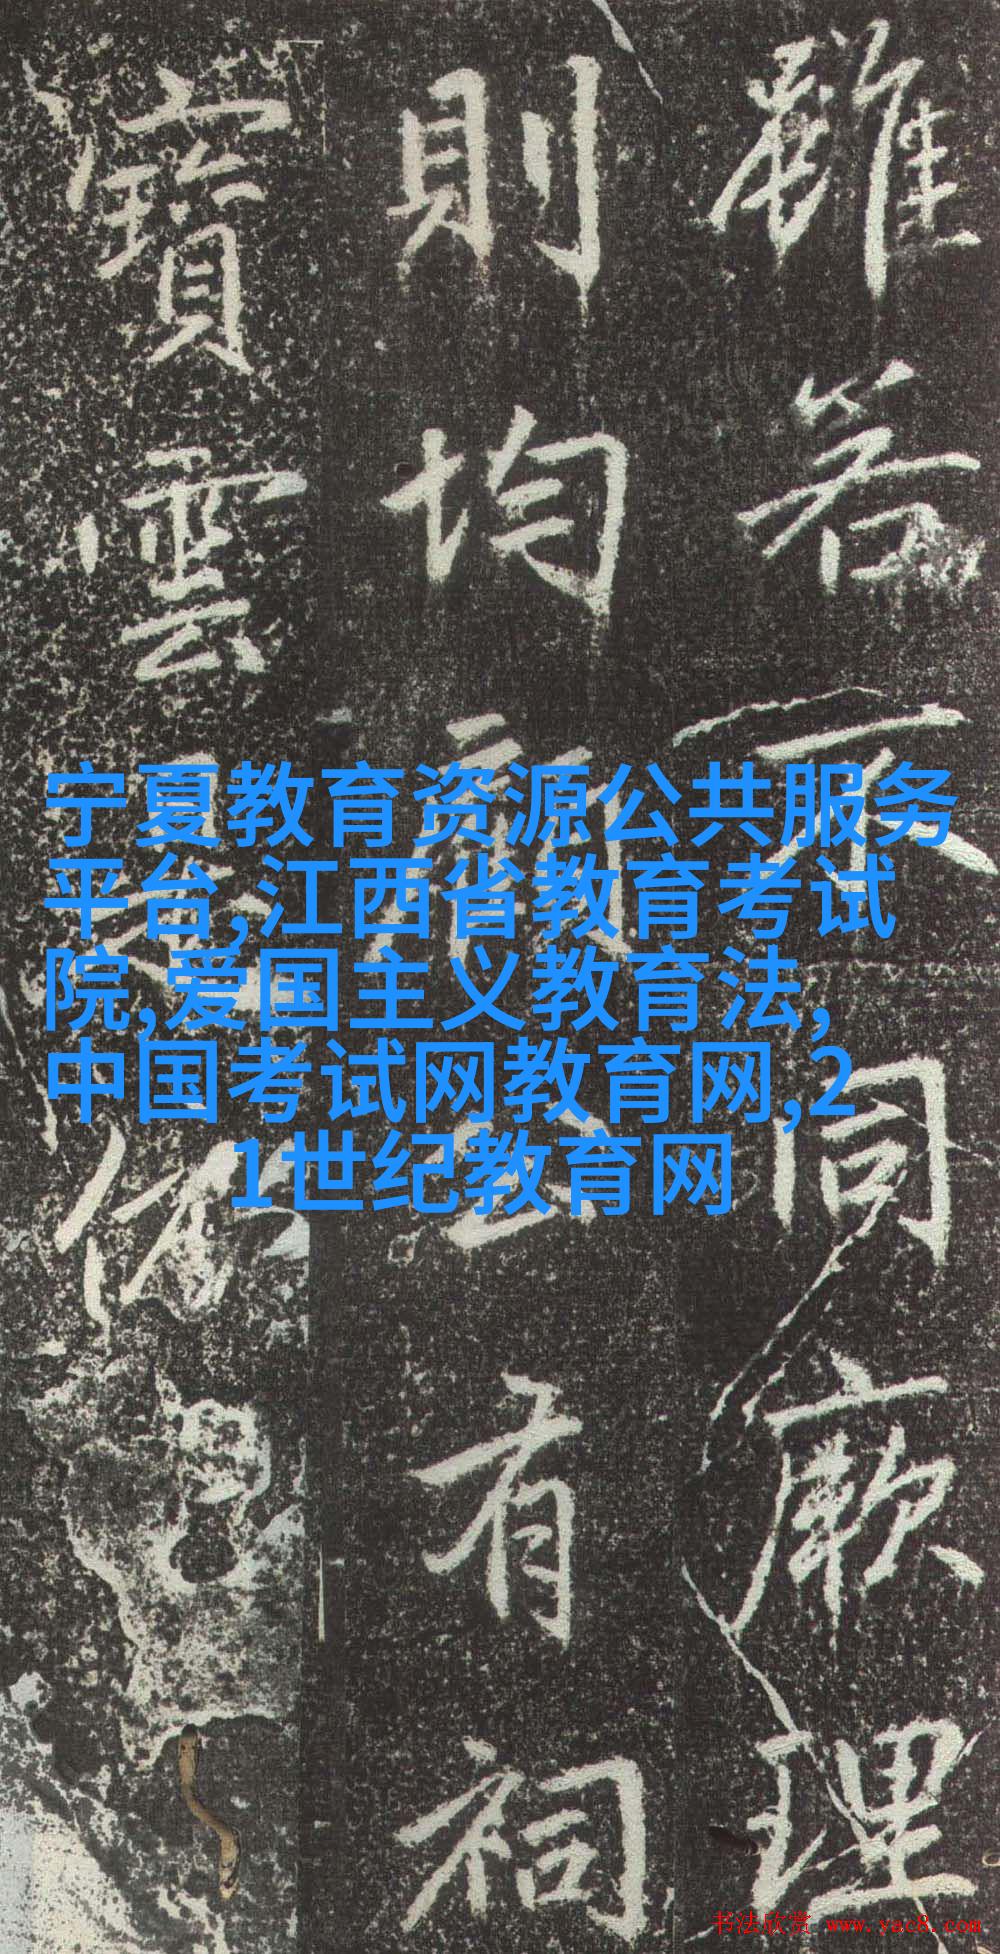 雖若不同厥理
則均廟
有祠
寶雲
宁夏教育资源公共服务
平台,江西省教育考试
院,爱国主义教育法,
中国考试网教育网,2
1世纪教育网
书法欣赏 www.yac8.com